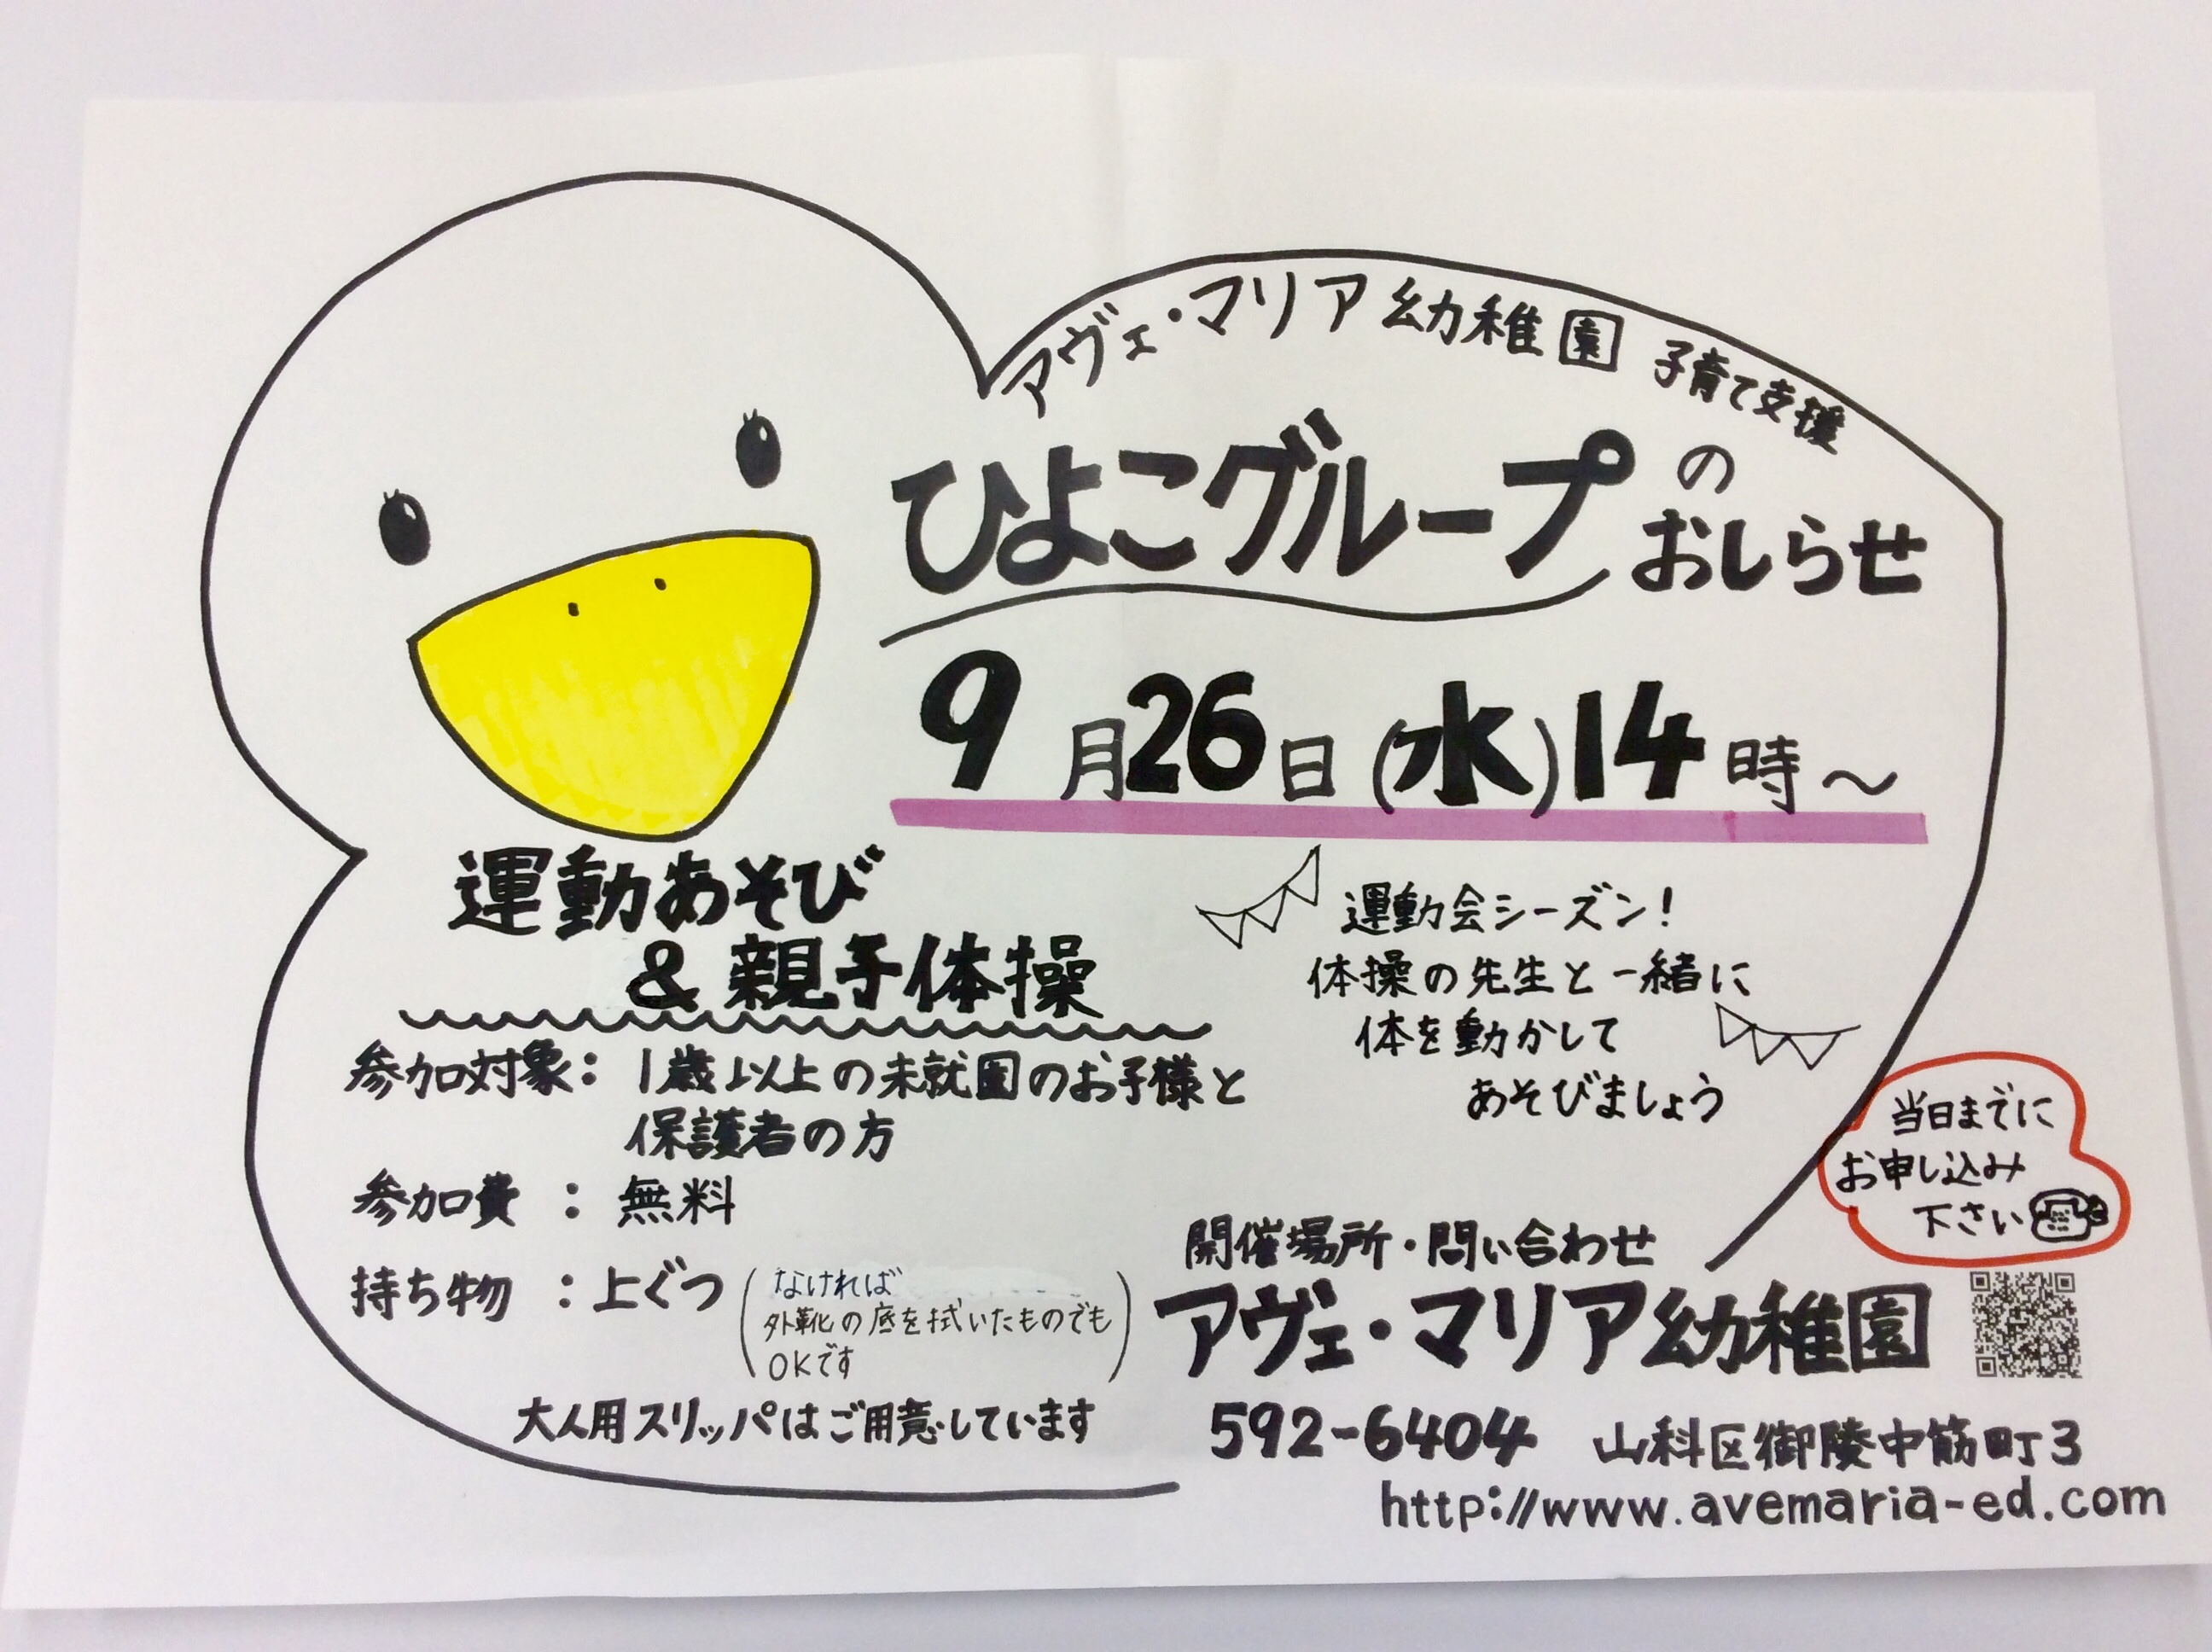 アヴェ・マリア幼稚園 子育て支援
ひよこグループの
おしらせ
9月26日(水)14時～
運動あそび
&親子体操
運動会シーズン!
体操の先生と一緒に
体を動かして
あそびましょう
参加対象: 1歳以上の未就園のお子様と
保護者の方
参加費 : 無料
持ち物 : 上ぐつ(なければ
外靴の底を拭いたものでも
OKです)
大人用スリッパはご用意しています
当日までに
お申し込み
下さい
開催場所・問い合わせ
アヴェ・マリア幼稚園
592-6404 山科区御陵中筋町3
http://www.avemaria-ed.com